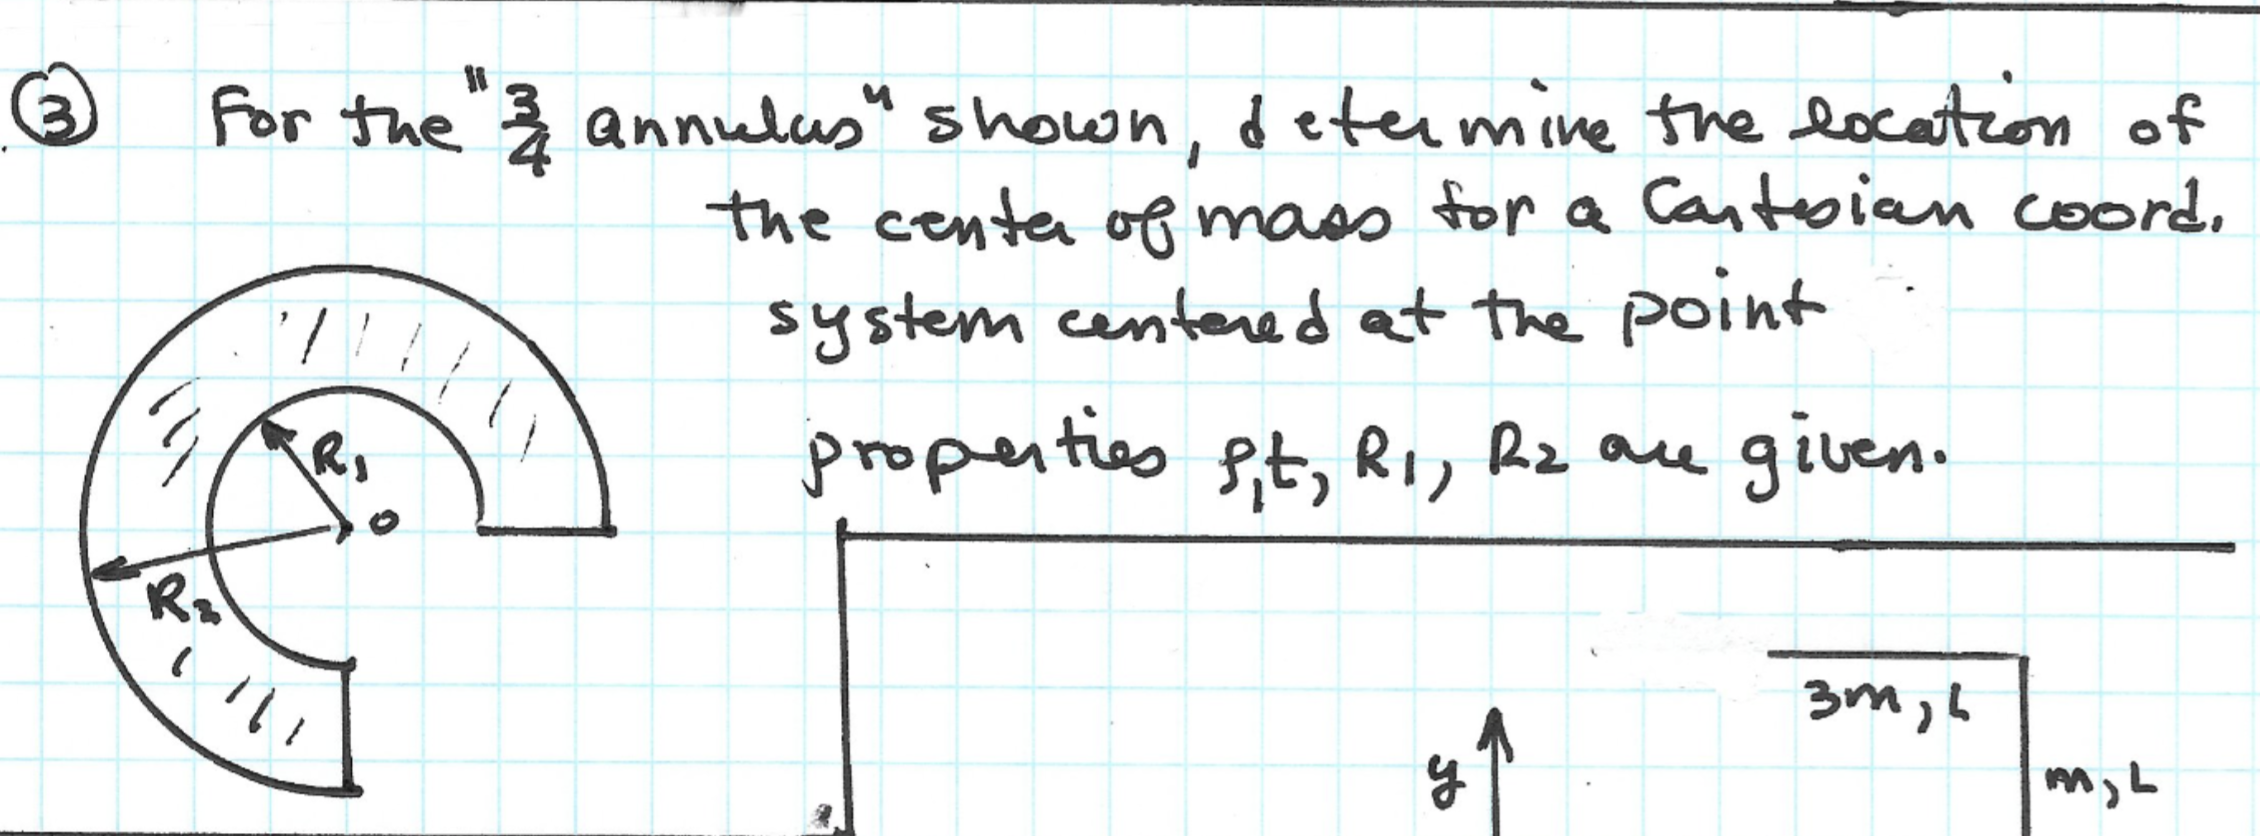 ③ For the "3/4 annulus" shown, determine the location of
the center of mass for a Cartesian coord.
system centered at the point
properties ρ, t, R₁, R₂ are given.
R₁
o
R₂
3m, L
y
m, L